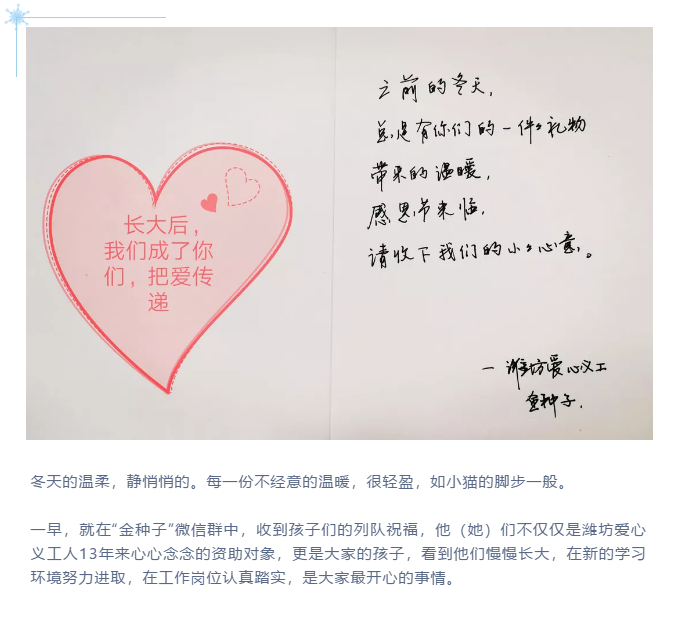 长大后，
我们成了你
们，把爱传
递
之前的冬天，
总是有你们的一件々礼物
带来的温暖，
感恩节来临，
请收下我们的小々心意。
—潍坊爱心义工
金种子.
冬天的温柔，静悄悄的。每一份不经意的温暖，很轻盈，如小猫的脚步一般。
一早，就在“金种子”微信群中，收到孩子们的列队祝福，他（她）们不仅仅是潍坊爱心
义工人13年来心心念念的资助对象，更是大家的孩子，看到他们慢慢长大，在新的学习
环境努力进取，在工作岗位认真踏实，是大家最开心的事情。